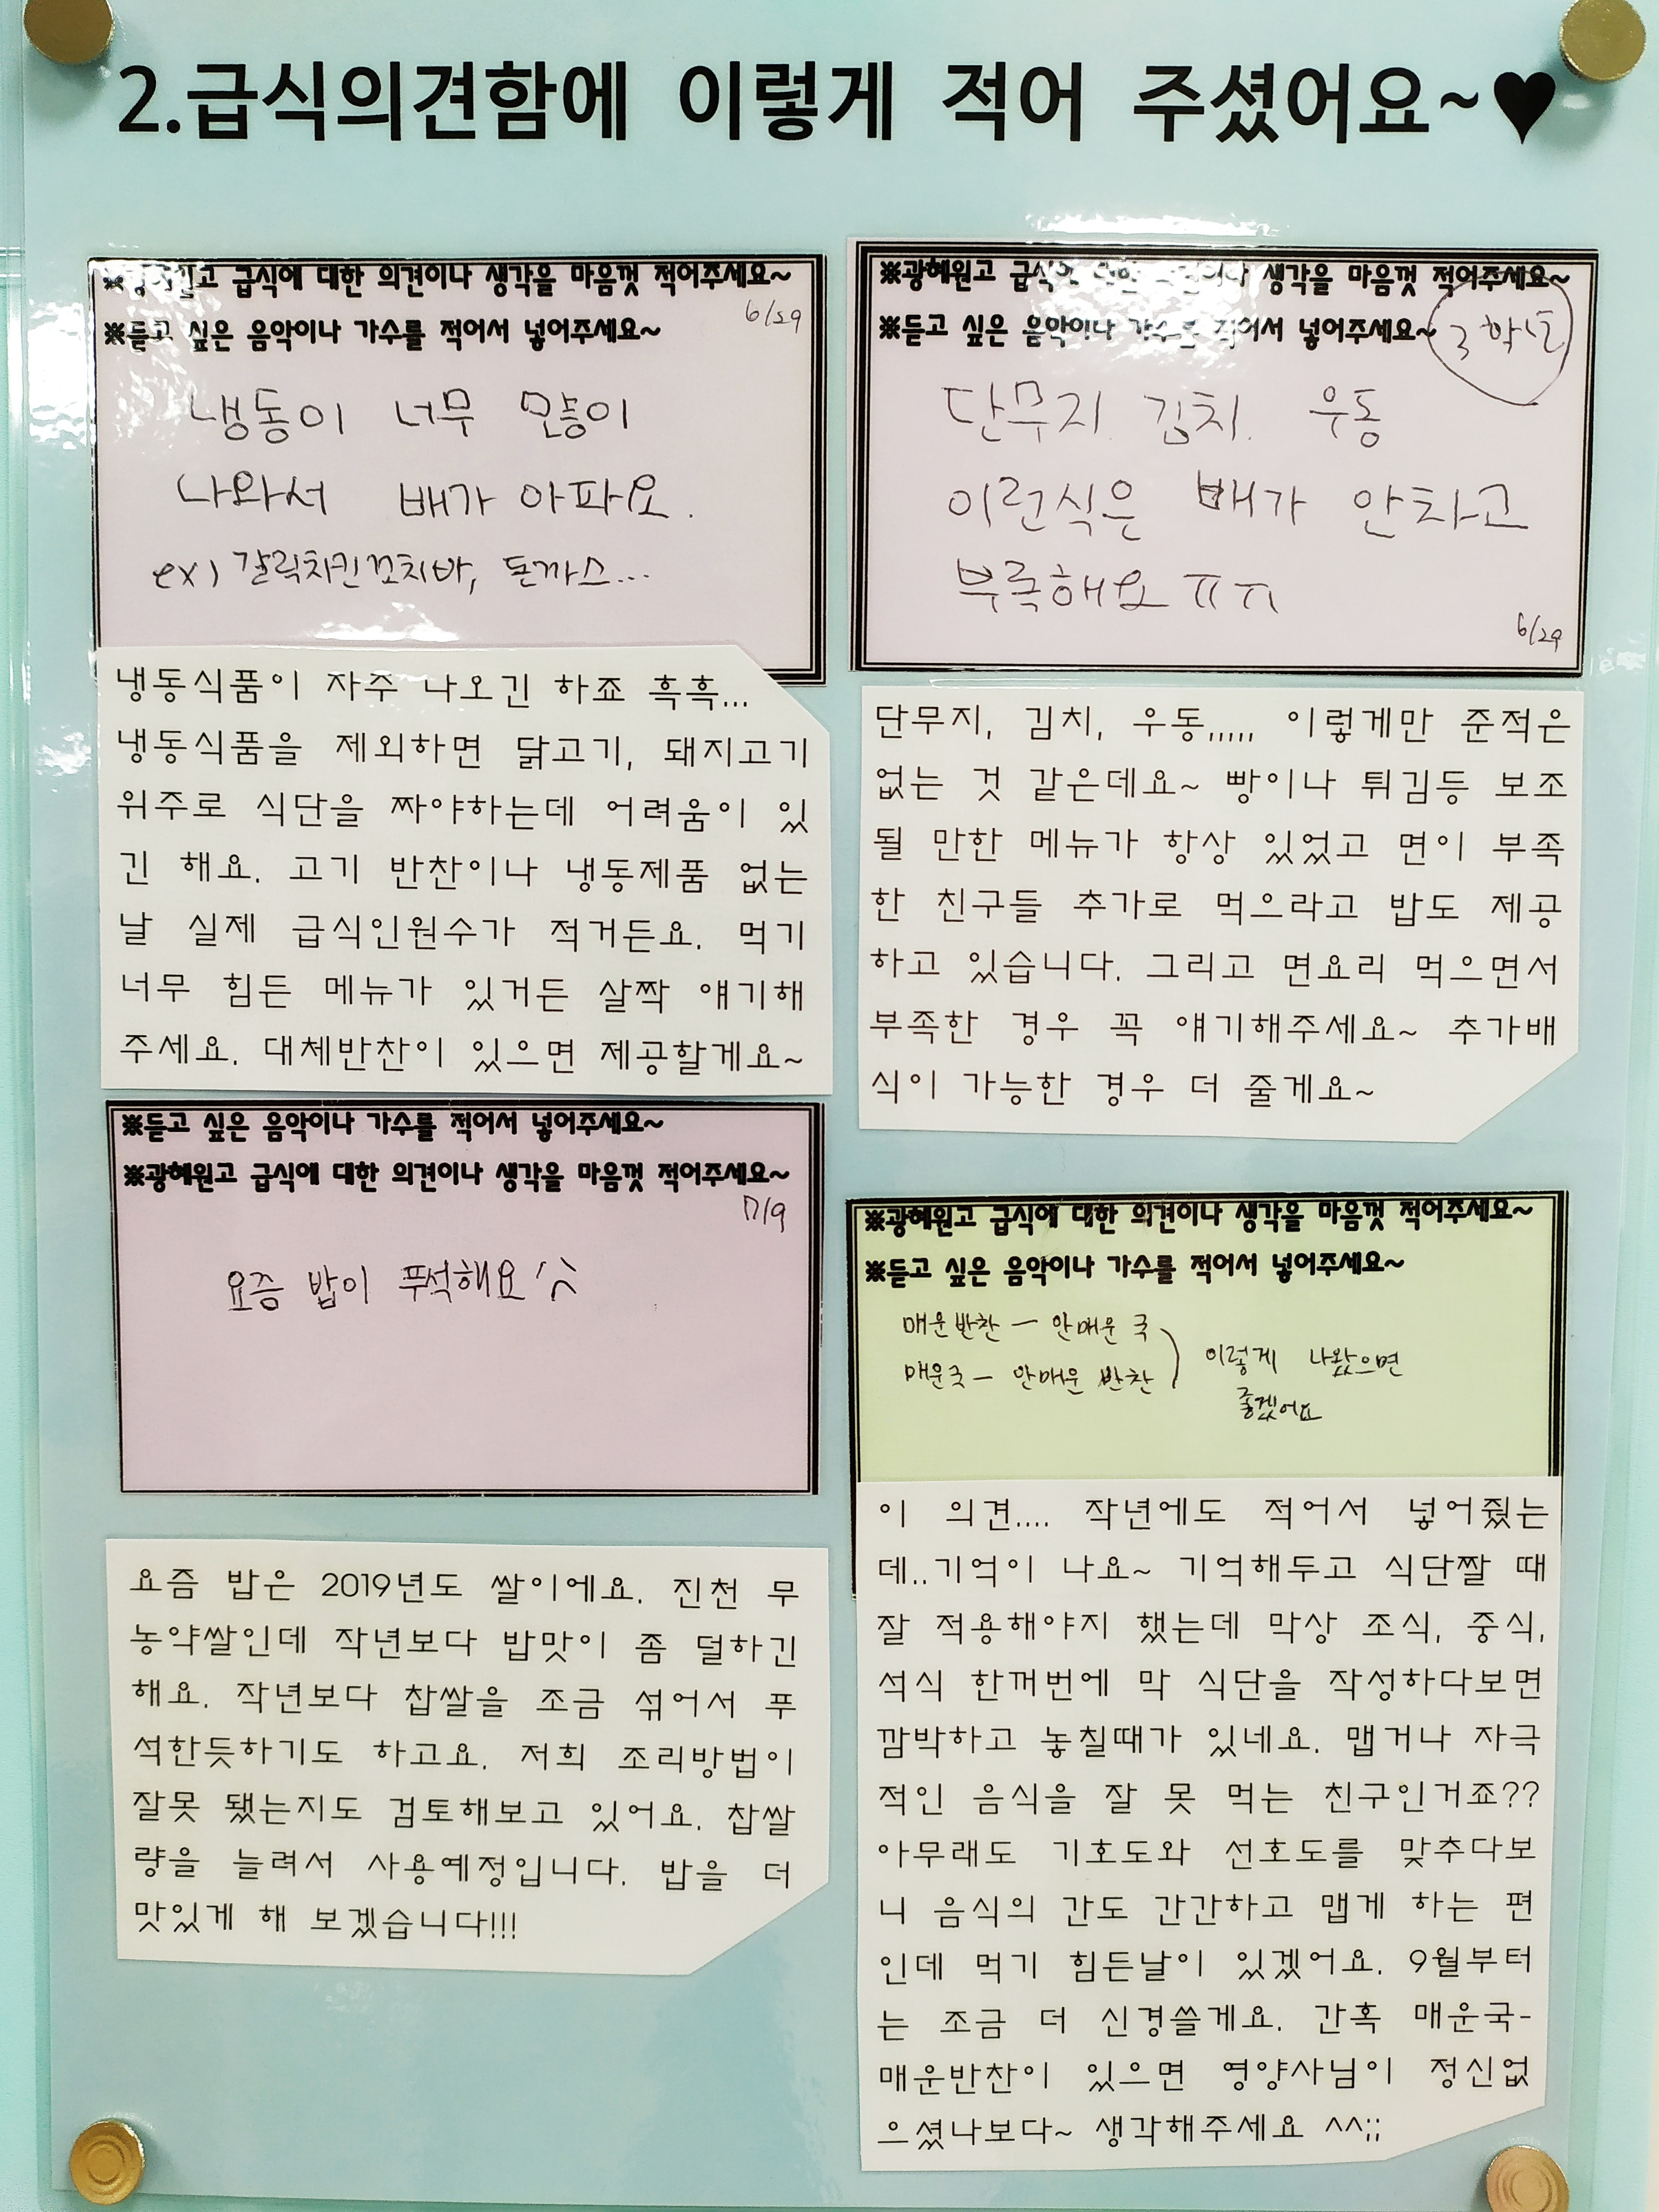 2.급식의견함에 이렇게 적어 주셨어요~♥
※광혜원고 급식에 대한 의견이나 생각을 마음껏 적어주세요~
6/29
※듣고 싶은 음악이나 가수를 적어서 넣어주세요~
냉동이 너무 많이
나와서 배가 아파요.
ex) 갈릭치킨꼬치바, 돈까스...
냉동식품이 자주 나오긴 하죠 흑흑...
냉동식품을 제외하면 닭고기, 돼지고기
위주로 식단을 짜야하는데 어려움이 있
긴 해요. 고기 반찬이나 냉동제품 없는
날 실제 급식인원수가 적거든요. 먹기
너무 힘든 메뉴가 있거든 살짝 얘기해
주세요. 대체반찬이 있으면 제공할게요~
※광혜원고 급식에 대한 의견이나 생각을 마음껏 적어주세요~
※듣고 싶은 음악이나 가수를 적어서 넣어주세요~
3학년
단무지. 김치. 우동
이런식은 배가 안차고
부족해요 ㅠㅠ
6/29
단무지, 김치, 우동,,,,, 이렇게만 준적은
없는 것 같은데요~ 빵이나 튀김등 보조
될 만한 메뉴가 항상 있었고 면이 부족
한 친구들 추가로 먹으라고 밥도 제공
하고 있습니다. 그리고 면요리 먹으면서
부족한 경우 꼭 얘기해주세요~ 추가배
식이 가능한 경우 더 줄게요~
※듣고 싶은 음악이나 가수를 적어서 넣어주세요~
※광혜원고 급식에 대한 의견이나 생각을 마음껏 적어주세요~
7/9
요즘 밥이 푸석해요
요즘 밥은 2019년도 쌀이에요. 진천 무
농약쌀인데 작년보다 밥맛이 좀 덜하긴
해요. 작년보다 찹쌀을 조금 섞어서 푸
석한듯하기도 하고요. 저희 조리방법이
잘못 됐는지도 검토해보고 있어요. 찹쌀
량을 늘려서 사용예정입니다. 밥을 더
맛있게 해 보겠습니다!!!
※광혜원고 급식에 대한 의견이나 생각을 마음껏 적어주세요~
※듣고 싶은 음악이나 가수를 적어서 넣어주세요~
매운반찬 ― 안매운 국
매운국 ― 안매운 반찬
이렇게 나왔으면
좋겠어요
이 의견.... 작년에도 적어서 넣어줬는
데..기억이 나요~ 기억해두고 식단짤 때
잘 적용해야지 했는데 막상 조식, 중식,
석식 한꺼번에 막 식단을 작성하다보면
깜박하고 놓칠때가 있네요. 맵거나 자극
적인 음식을 잘 못 먹는 친구인거죠??
아무래도 기호도와 선호도를 맞추다보
니 음식의 간도 간간하고 맵게 하는 편
인데 먹기 힘든날이 있겠어요. 9월부터
는 조금 더 신경쓸게요. 간혹 매운국-
매운반찬이 있으면 영양사님이 정신없
으셨나보다~ 생각해주세요 ^^;;